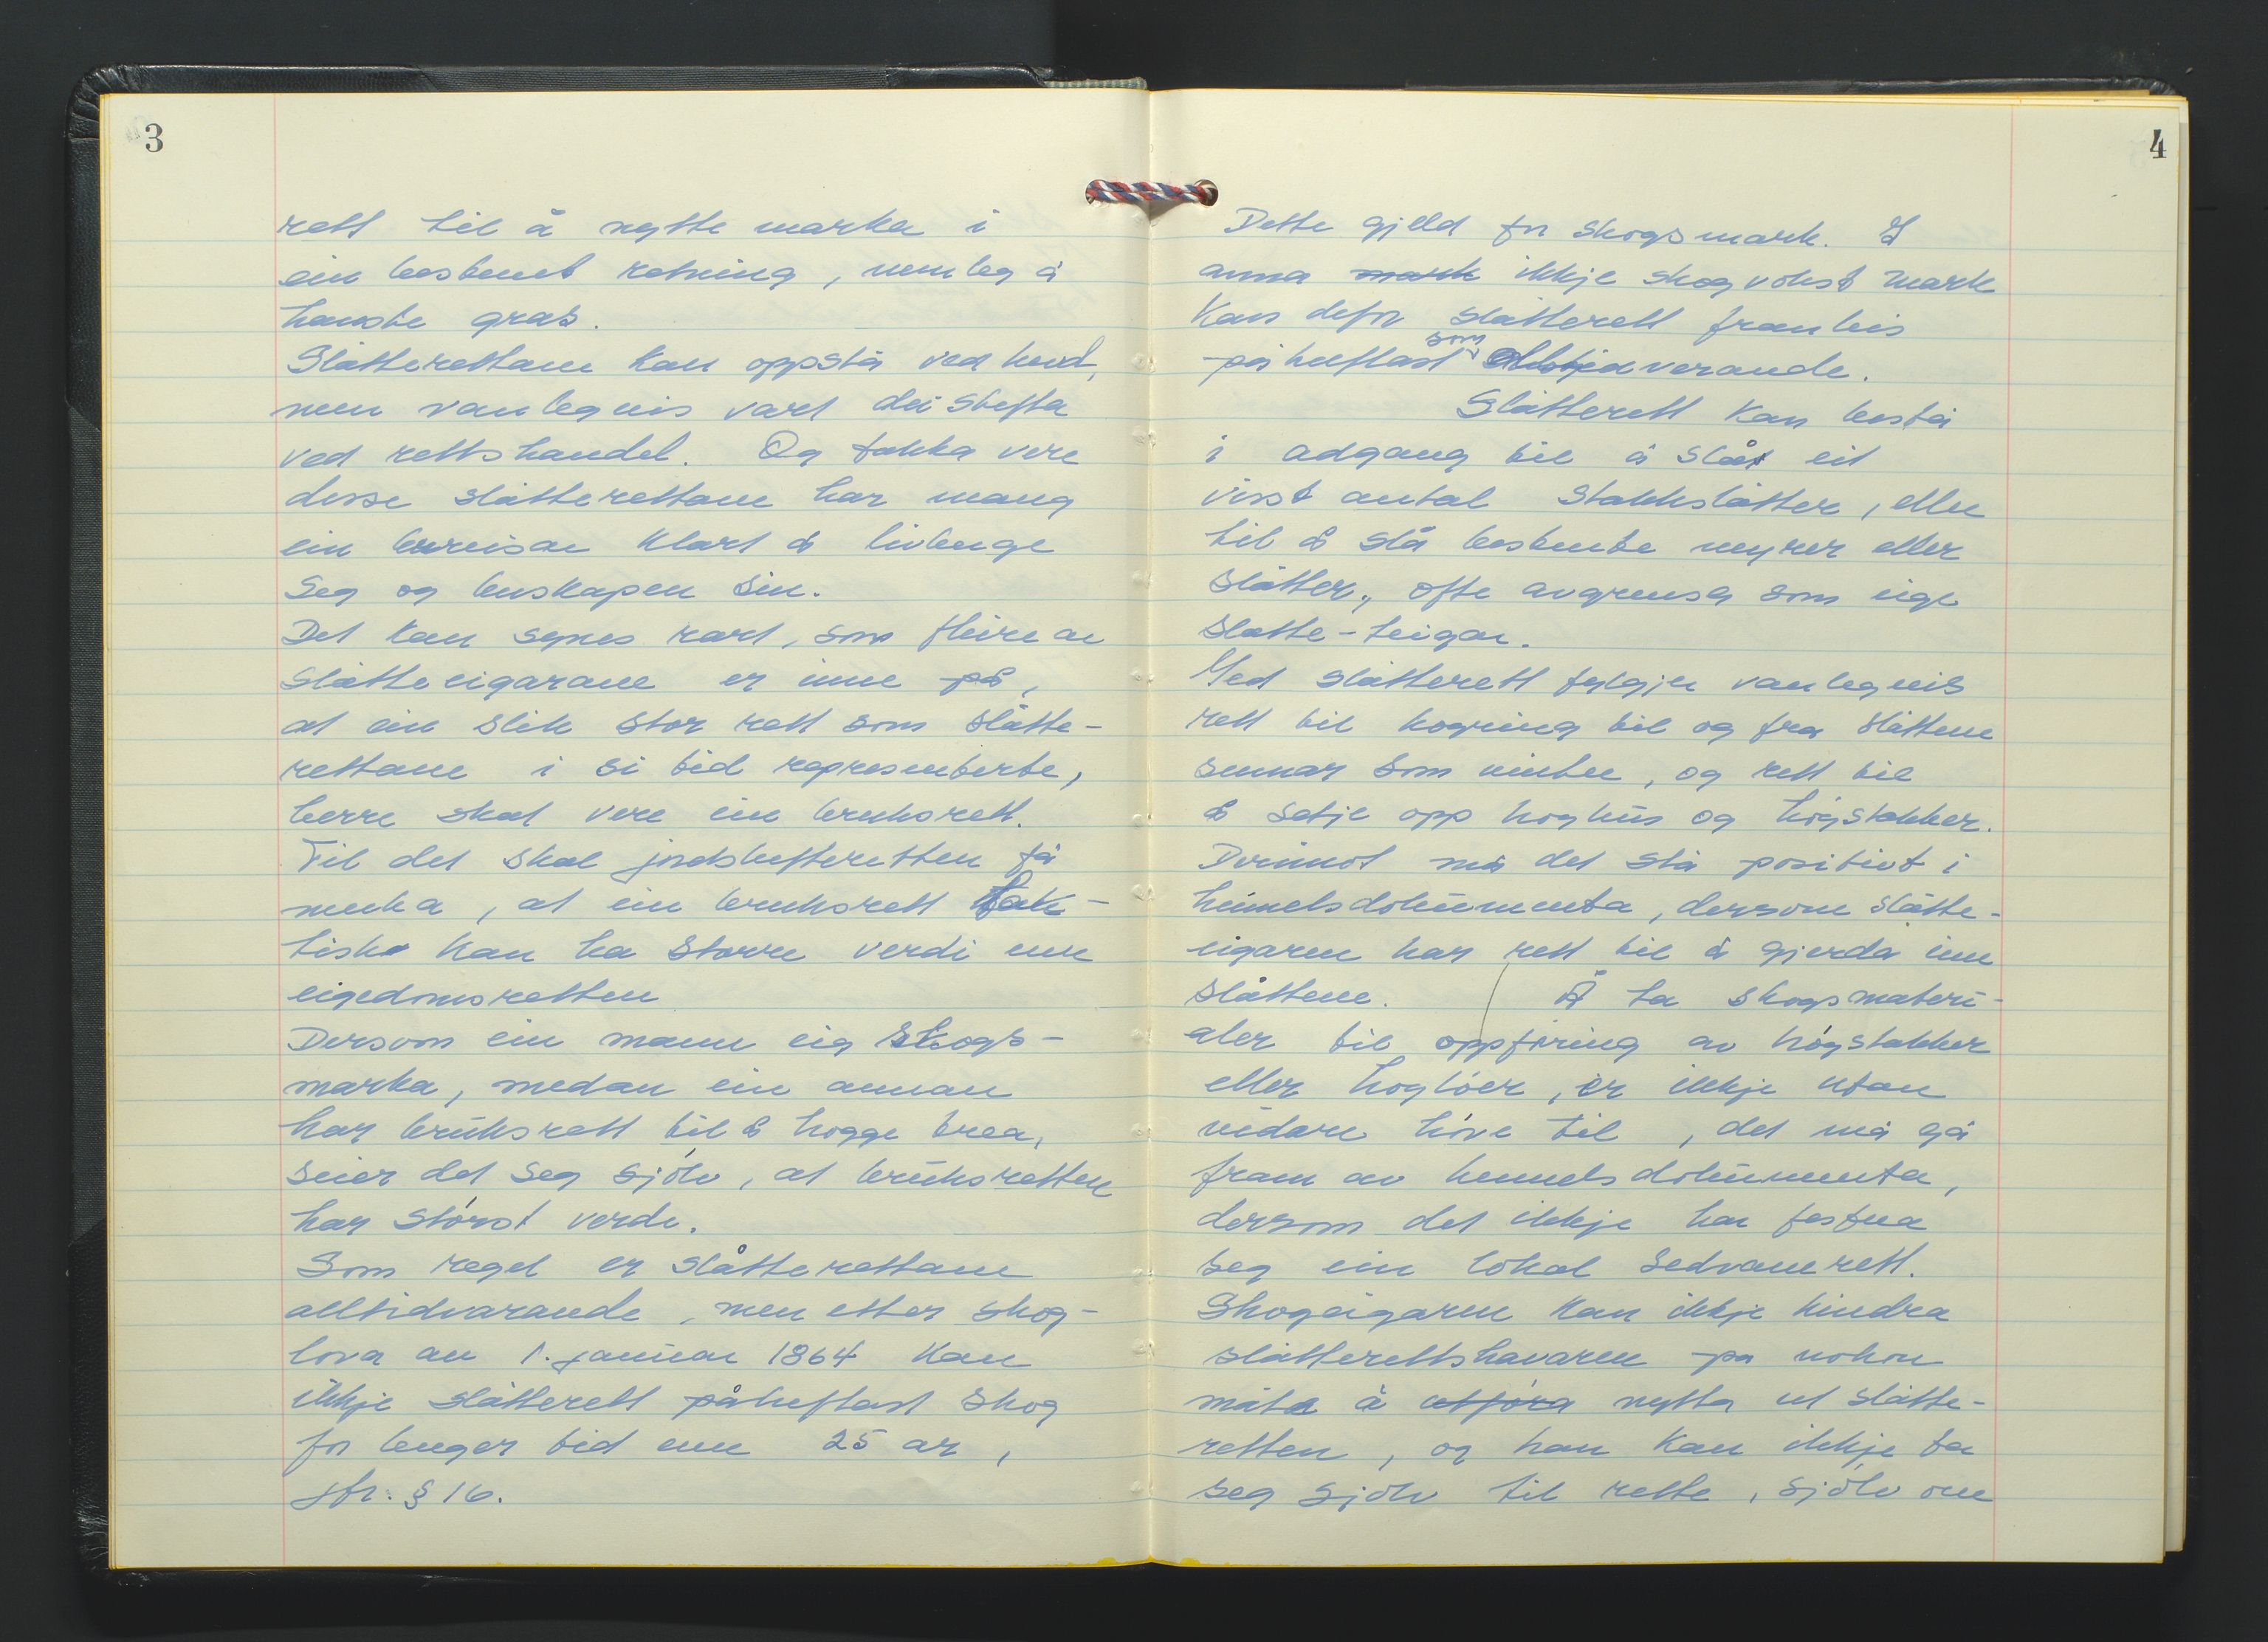 3
rett til å nytte marka i
ein bestemt retning, nemleg å
hauste gras.
Slåtterettane kan oppstå ved hevd,
men vanlegvis vart dei stifta
ved rettshandel. Og takka vere
desse slåtterettane har mang
ein brureisar klart å livberge
seg og buskapen sin.
Det kan synes rart, som fleire av
slåtteeigarane er inne på,
at ein slik stor rett som slåtte-
rettane i si tid representerte,
berre skal vere ein bruksrett.
Til det skal jordskifteretten få
merka, at ein bruksrett fak-
tisk kan ha større verdi enn
eigedomsretten
Dersom ein mann eig skogs-
marka, medan ein annan
har bruksrett til å hogge trea,
seier det seg sjølv, at bruksretten
har størst verde.
Som regel er slåtterettane
alltidvarande, men etter skog-
lova av 1. januar 1864 kan
ikkje slåtterett påheftast skog
for lenger tid enn 25 år,
jfr. § 16.
4
Dette gjeld for skogsmark. I
anna mark ikkje skogvokst mark
kan defor slåtterett framleis
påheftast som alltidverande.
Slåtterett kan bestå
i adgang til å slå eit
visst antal stakkslåtter, eller
til å slå bestemte myrer eller
slåtter, ofte avgrensa som eige
slåtte-teigar.
Med slåtterett fylgjer vanlegvis
rett til køyring til og fra slåttene
sumar som vinter, og rett til
å setje opp høyhus og høystakker.
Derimot må det stå positivt i
heimelsdokumenta, dersom slåtte-
eigaren har rett til å gjerda inn
slåttene. Å ta skogsmateri-
aler til oppføring av høystakker
eller høyløer, er ikkje utan
vidare høve til, det må gå
fram av heimelsdokumenta,
dersom det ikkje har festna
seg ein lokal sedvanerett.
Skogeigaren kan ikkje hindra
slåtterettshavaren på nokon
måte å utføra nytta ut slåtte-
retten, og han kan ikkje ta
seg sjølv til rette, sjølv om